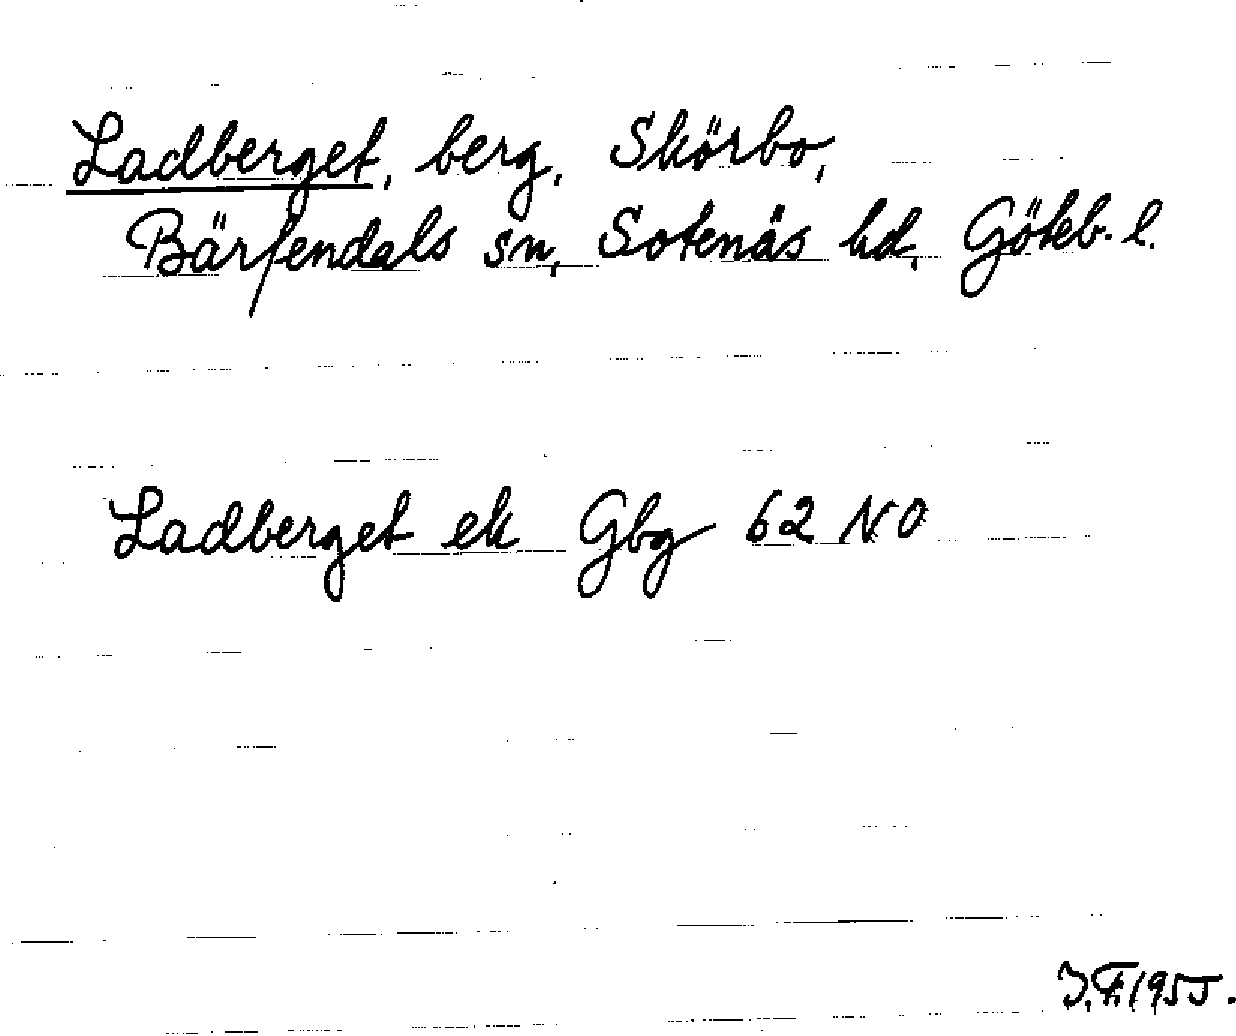 Ladberget, berg, Skörbo,
Bärfendals sn, Sotenäs hd, Göteb. l.
Ladberget ek Gbg 62 NO
J.F. 1955.